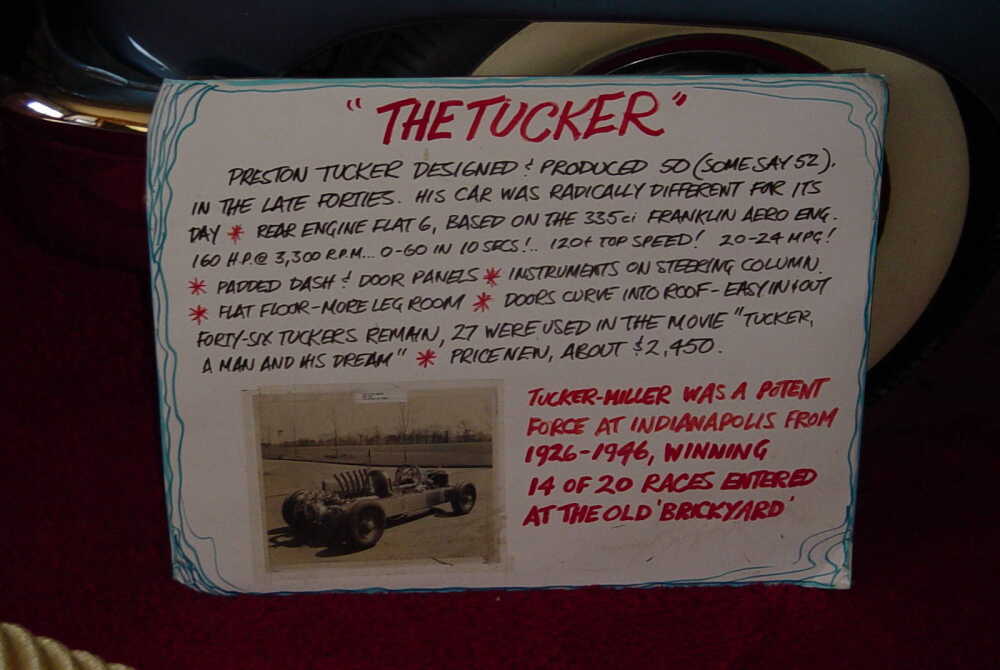 "THE TUCKER"
PRESTON TUCKER DESIGNED & PRODUCED 50 (SOME SAY 52).
IN THE LATE FORTIES. HIS CAR WAS RADICALLY DIFFERENT FOR ITS
DAY * REAR ENGINE FLAT 6, BASED ON THE 335ci FRANKLIN AERO ENG.
160 H.P.@ 3,300 R.P.M... 0-60 IN 10 SECS!.. 120+ TOP SPEED! 20-24 MPG!
* PADDED DASH & DOOR PANELS * INSTRUMENTS ON STEERING COLUMN.
* FLAT FLOOR-MORE LEG ROOM * DOORS CURVE INTO ROOF-EASY IN & OUT
FORTY-SIX TUCKERS REMAIN, 27 WERE USED IN THE MOVIE "TUCKER,
A MAN AND HIS DREAM" * PRICE NEW, ABOUT $2,450.
TUCKER-MILLER WAS A POTENT
FORCE AT INDIANAPOLIS FROM
1926-1946, WINNING
14 OF 20 RACES ENTERED
AT THE OLD 'BRICKYARD'